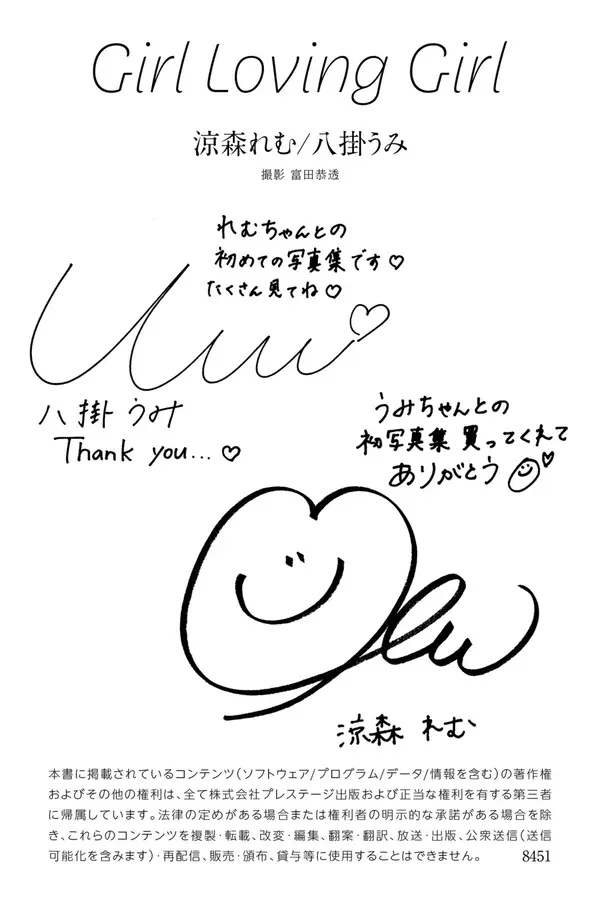 Girl Loving Girl
涼森れむ/八掛うみ
撮影 富田恭透
れむちゃんとの
初めての写真集です♡
たくさん見てね♡
八掛うみ
Thank you...♡
うみちゃんとの
初写真集 買ってくれて
ありがとう
涼森 れむ
本書に掲載されているコンテンツ(ソフトウェア/プログラム/データ/情報を含む)の著作権
およびその他の権利は、全て株式会社プレステージ出版および正当な権利を有する第三者
に帰属しています。法律の定めがある場合または権利者の明示的な承諾がある場合を除
き、これらのコンテンツを複製・転載、改変・編集、翻案・翻訳、放送・出版、公衆送信(送信
可能化を含みます)・再配信、販売・頒布、貸与等に使用することはできません。 8451